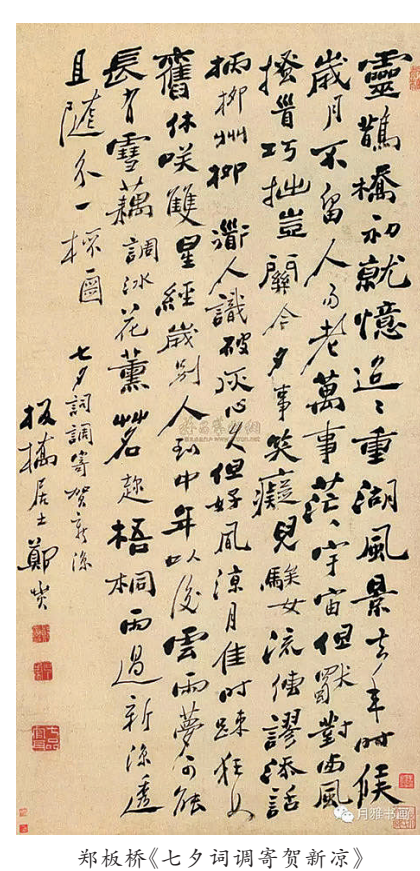 靈鵲橋初就憶迢〻重湖風景去年時候
歲月不留人易老萬事茫〻宇宙但獨對西風
搔首巧拙豈關今夕事笑癡兒騃女流傳謬添話
柄柳州柳道人識破灰心久但好風涼月佳時踈狂如
舊休咲雙星經歲別人到中年以後雲雨夢可能
長有雪藕調冰花薰茗趂梧桐雨過新涼透
且隨分一杯
七夕詞調寄賀新涼
板橋居士鄭燮
月雅书画
郑板桥《七夕词调寄贺新凉》